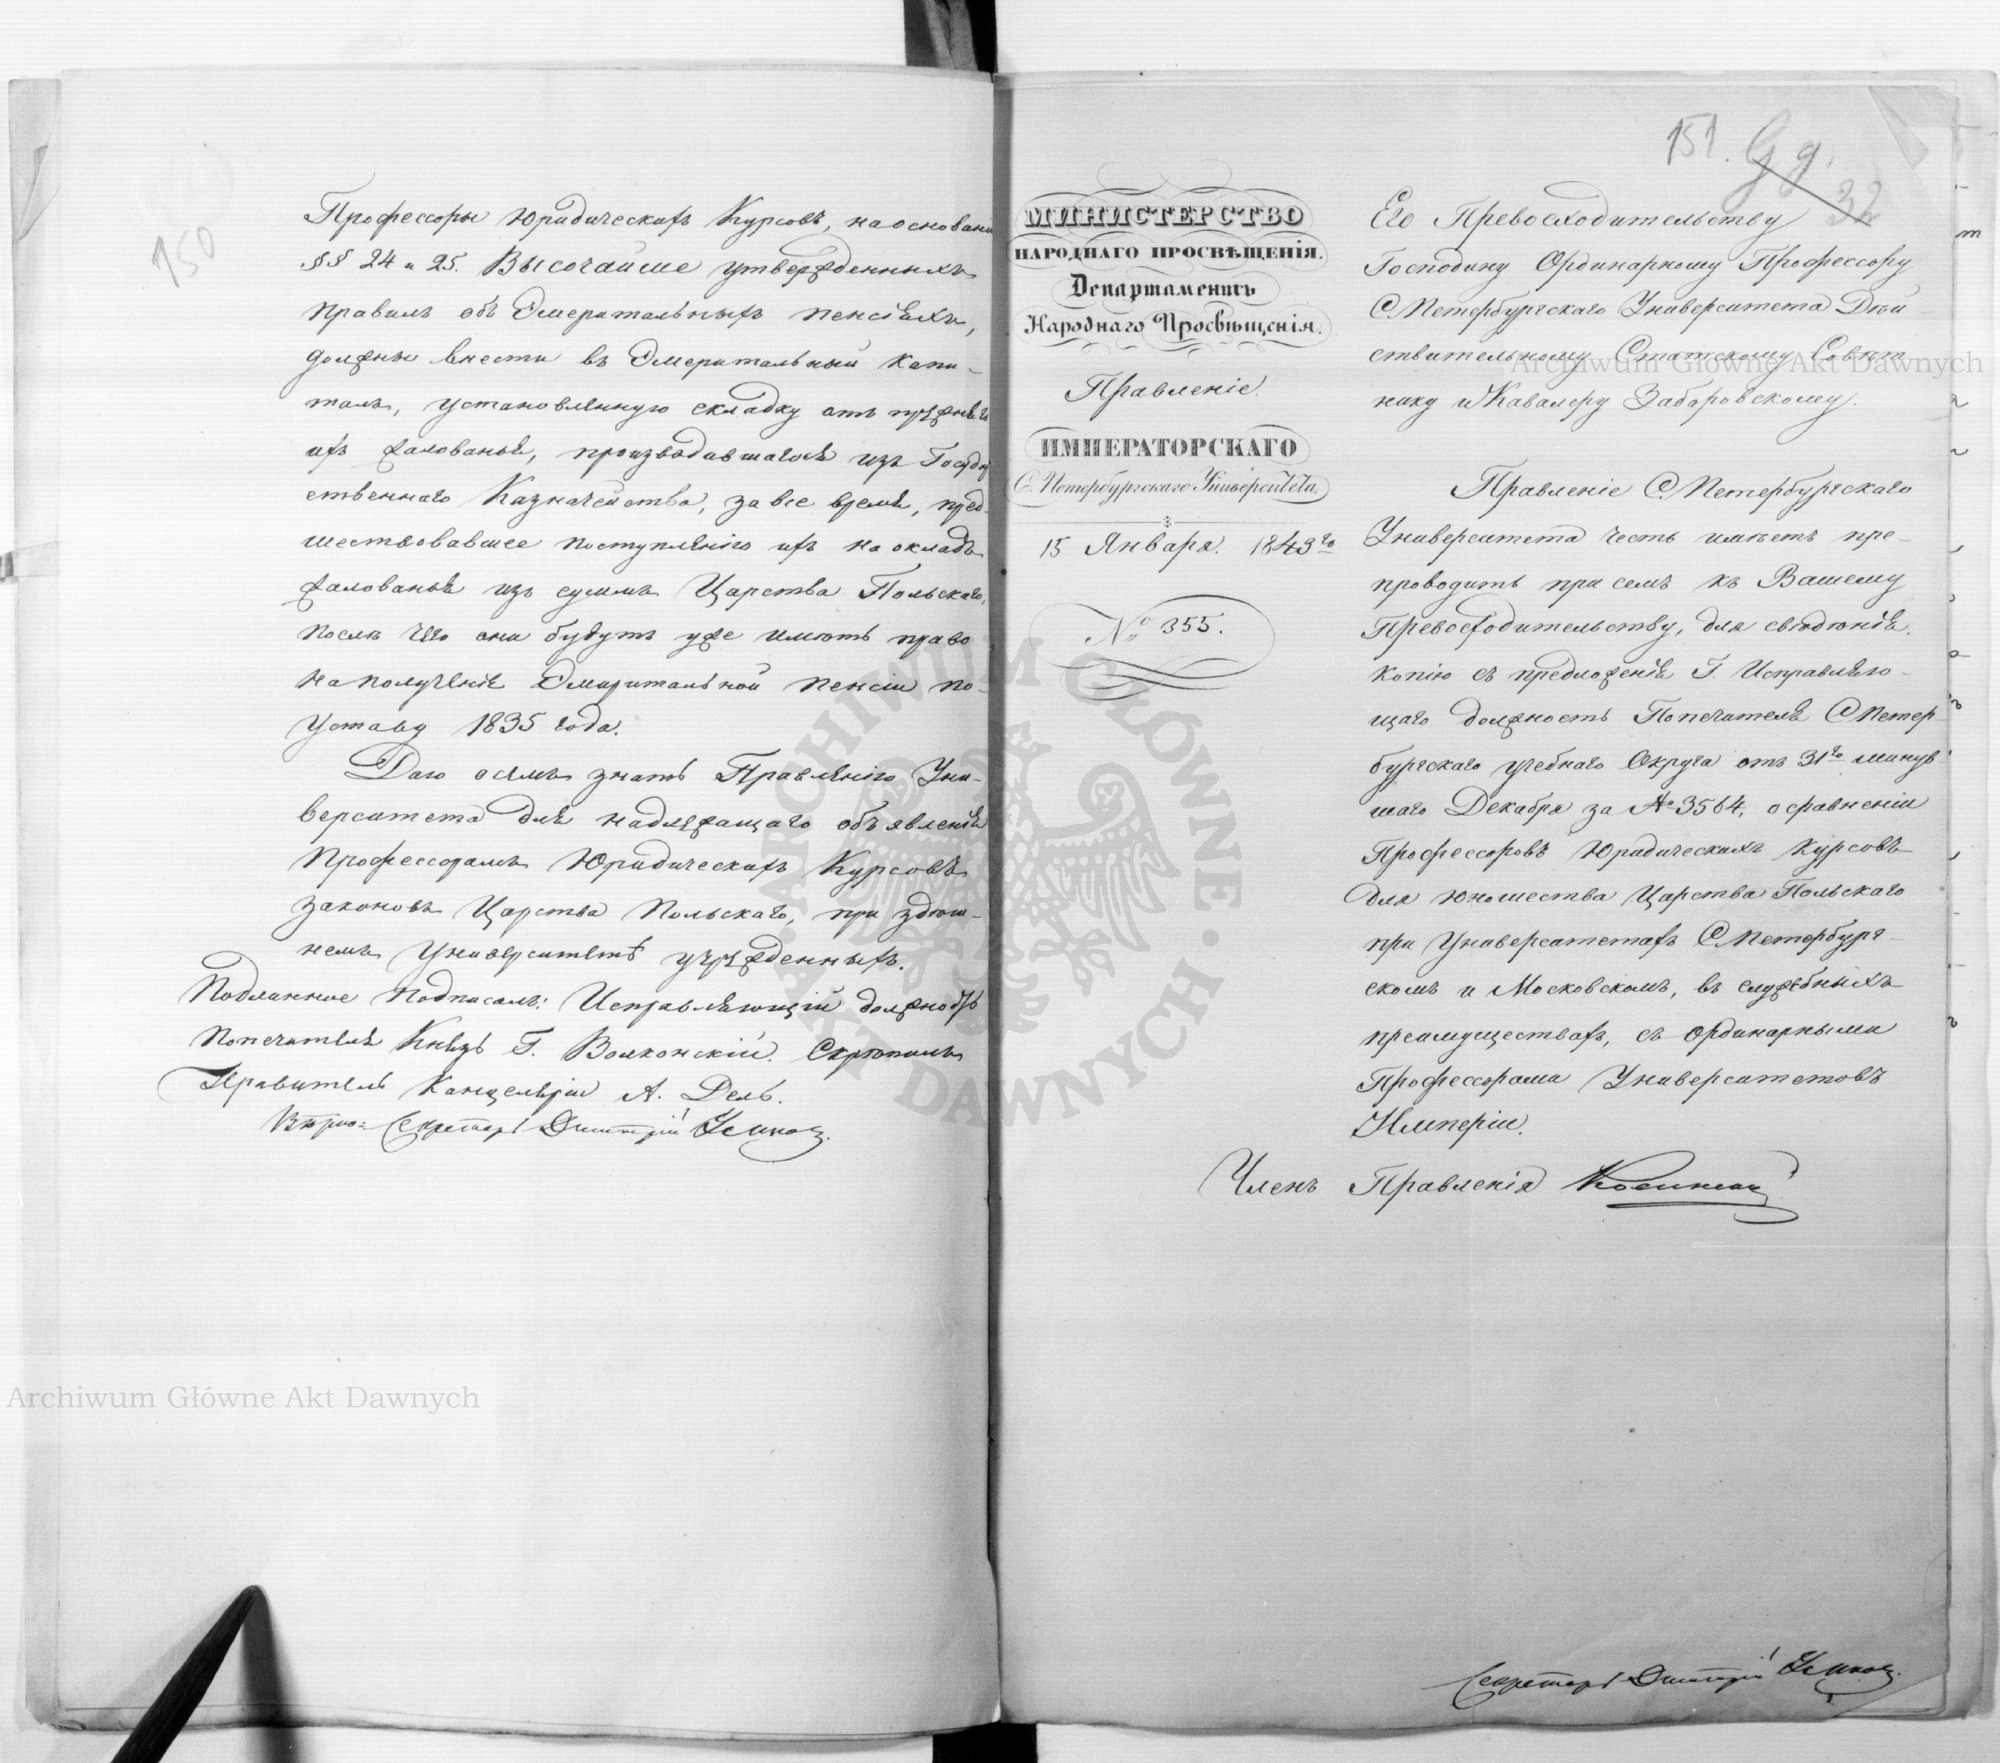 150
Профессоры Юридическихъ Курсовъ, на основани
§§ 24 и 25. Высочайше утвержденныхъ
правилъ объ Эмеритальныхъ пенсіяхъ,
должны внести въ Эмеритальный капи-
талъ, установленную складку отъ прежняго
ихъ жалованья, производившагося изъ Государ
ственнаго Казначейства, за все время, пред-
шествовавшее поступленію ихъ на окладъ
жалованья изъ суммъ Царства Польскаго,
послѣ чего они будутъ уже имѣть право
на полученіе Эмеритальной пенсіи по
Уставу 1835 года.
Даю о семъ знать Правленію Уни-
верситета для надлежащаго объявленія
Профессорамъ Юридическихъ Курсовъ
законовъ Царства Польскаго, при здѣш-
немъ Университетѣ учрежденныхъ.
Подлинное подписалъ: Исправляющій должность
Попечителя Князь Г. Волконскій. Скрѣпилъ
Правитель Канцеляріи А. Дель.
Вѣрно: Секретарь Дмитрій
151. Gg.
32
МИНИСТЕРСТВО
НАРОДНАГО ПРОСВѢЩЕНІЯ.
Департаментъ
Народнаго Просвѣщенія.
Правленіе
ИМПЕРАТОРСКАГО
С. Петербургскаго Университета.
15 Января. 1843го
№ 355.
Его Превосходительству
Господину Ординарному Профессору
СПетербургскаго Университета Дѣй
ствительному Статскому Совѣт
нику и Кавалеру Забаровскому.
Правленіе СПетербургскаго
Университета честь имѣетъ пре-
проводить при семъ къ Вашему
Превосходительству, для свѣдѣнія,
копію съ предложенія Г. Исправляю-
щаго должность Попечителя СПетер-
бургскаго учебнаго Округа отъ 31го минув
шаго Декабря за № 3564, о сравненіи
Профессоровъ Юридическихъ Курсовъ
для юношества Царства Польскаго
при Университетахъ СПетербург-
скомъ и Московскомъ, въ служебныхъ
преимуществахъ, съ ординарными
Профессорами Университетовъ
Имперіи.
Членъ Правленія
Секретарь Дмитрій
Archiwum Główne Akt Dawnych
Archiwum Główne Akt Dawnych
ARCHIWUM GŁÓWNE
AKT DAWNYCH